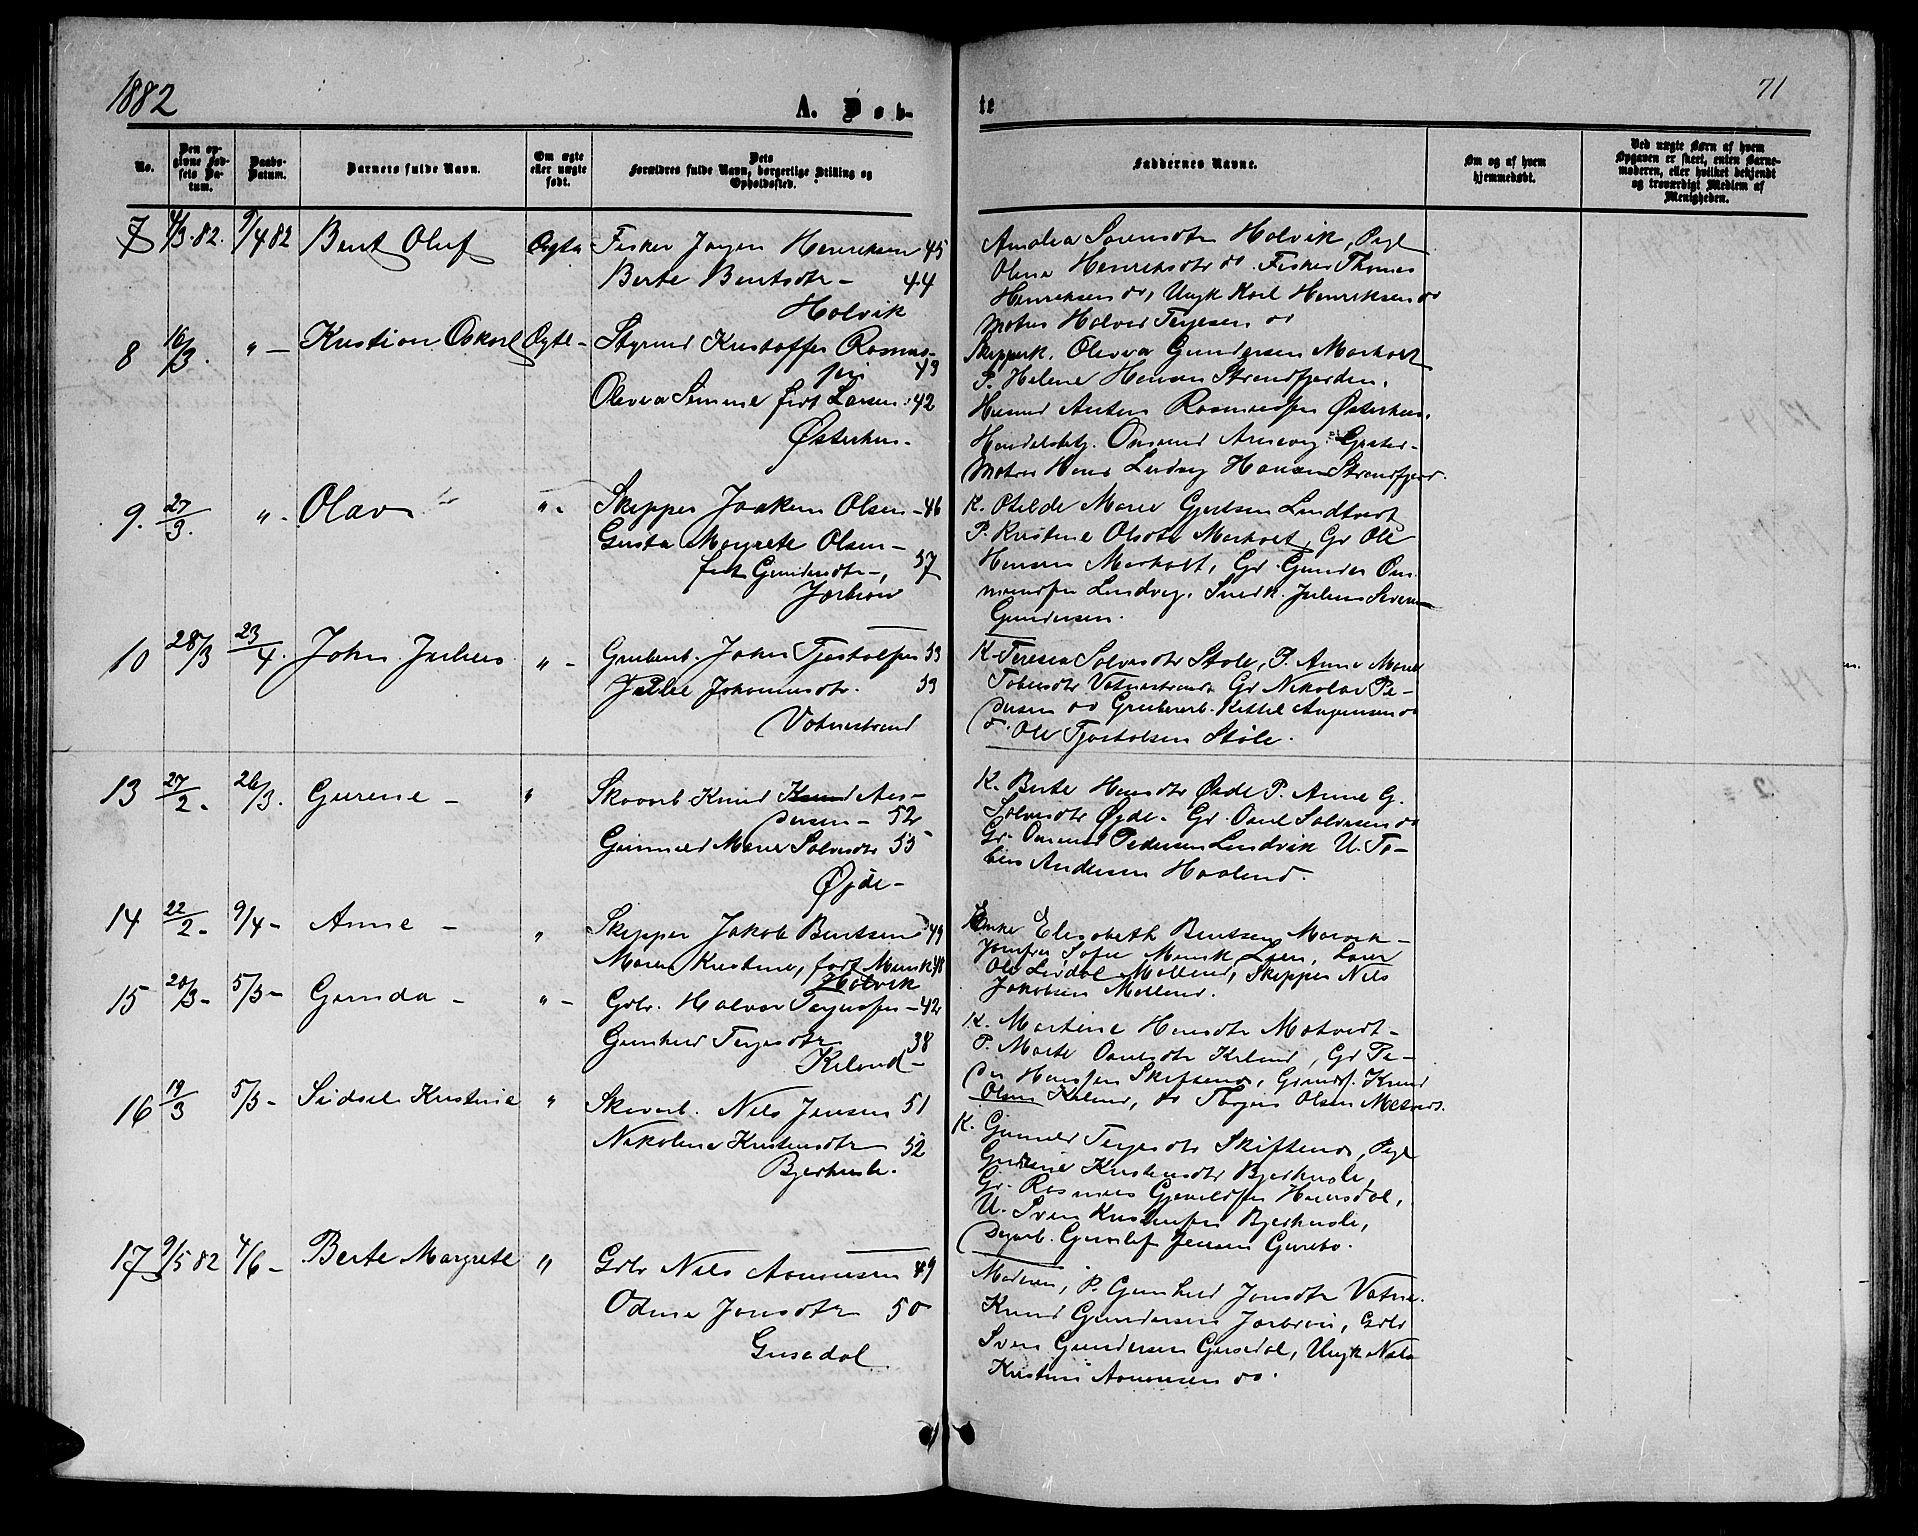 1882
71
A. Døb-
te
No.
Den op-
givne Fød-
sels Da-
tum.
Daabs-
Datum.
Barnets fulde Navn.
Om ægte
eller uægte
født.
Dets
Forældres fulde Navn, borgerlige Stilling og
Opholdssted.
Faddernes Navne.
Om og af hvem
hjemmedøbt.
Ved uægte Børn af hvem
Opgaven er skeet, enten Barne-
moderen, eller hvilket bekjendt
og troværdigt Medlem af
Menigheden.
7 4/3 82. 9/4 82 Bent Oluf Ægte Fisker Jørgen Henriksen 45
Berte Bentsdtr – 44
Holvik
Amalia Sørensdtr Holvik, Pige
Olene Henriksdtr do. Fisker Thomas
Henriksen do, Ungk Karl Henriksen do
Matros Halvor Terjesen do
8 16/3. " – Kristian Oskar Ægte – Styrmd Kristoffer Rasmus-
sen 43
Olevia Simine født Larsen 42
Østerhus.
Skipperk. Olevia Gundersen Morholt
P. Helene Hansen Strandfjorden.
Husmd Anten Rasmussen Østerhus.
Handelsbetj. Omund
Matros Hans Ludvig Hansen Strandfjord.
9. 27/3. " – Olav " – Skipper Joakim Olsen – 46
Gusta Margrete Olsen –
født Gundersdtr –, 57
K. Otilde Marie Gjertsen Lindtveit
P. Kristine Olsdtr Morholt, Gr Ole
Hansen Morholt, Gr. Gunder Om-
mundsen Lindvig. Snedk. Julius Severin
Gundersen.
10 28/3 23/4. John Julius " – Grubearb. John Tjostolfsen 53
Johannesdtr. 59
Vatnestrand
K. Teresia Solvesdtr Støle, P. Anne Marie
Tobiasdtr Vatnestrand Gr Nikolai Pe-
dersen do Grubearb. Kittel Aanensen do
do. Ole Tjostolsen Støle.
13 27/2 – 26/3. Gurine – " Skovarb Knud An-
dersen – 52
Gunnild Marie Solvesdtr 55
Øyde –
K. Berte Hansdtr Øyde P. Anne G.
Solvesdtr Øyde. Gr. Omd Solvesen do
Gr. Omund Pedersen Lindvik U. To-
bias Andersen Haaland.
14 22/2 – 9/4 – Anne – " Skipper Jakob Bentsen 49
Maren Kristine, født Munk 48
Holvik
Enke Elisabeth Bentsen
Jomfru Sofie Munk Lien,
Ole Lisdal Molland, Skipper Nils
Jakobsen Molland.
15 20/3 – 5/5 – Gunda – " – Grbr. Halvor Terjesen – 42
Gunhild Terjesdtr 38
Kiland –
K. Martine Hansdtr Møtvedt –
P. Marte Omdsdtr Kiland, Gr Pe-
der Hanssen Skiftenes, Knud
Olsen Kiland, do Olsen
16 19/3 5/5 – Sidsel Kristine " Skovarb. Nils Jensen 51
Nikoline Kristensdtr 52
Bjerkusle.
K. Gunnild Terjesdtr Skiftenes, Pige
Kristensdtr Bjerkusle,
Gr. Rasmus Haugsdal,
U. Sven Kristensen Bjerkusle,
Jensen Gurebo.
17 9/5 82 4/6 – Berte Margrete " Grbr Nils Aanonsen 49
Odine Jonsdtr 50
Gusedal
Moderen, P. Gunhild Jonsdtr Vatne.
Knud Gundersen Jorbron, Grbr
Sven Gundersen Gusedal, Ungk Nils
Kristian Aanonsen do.